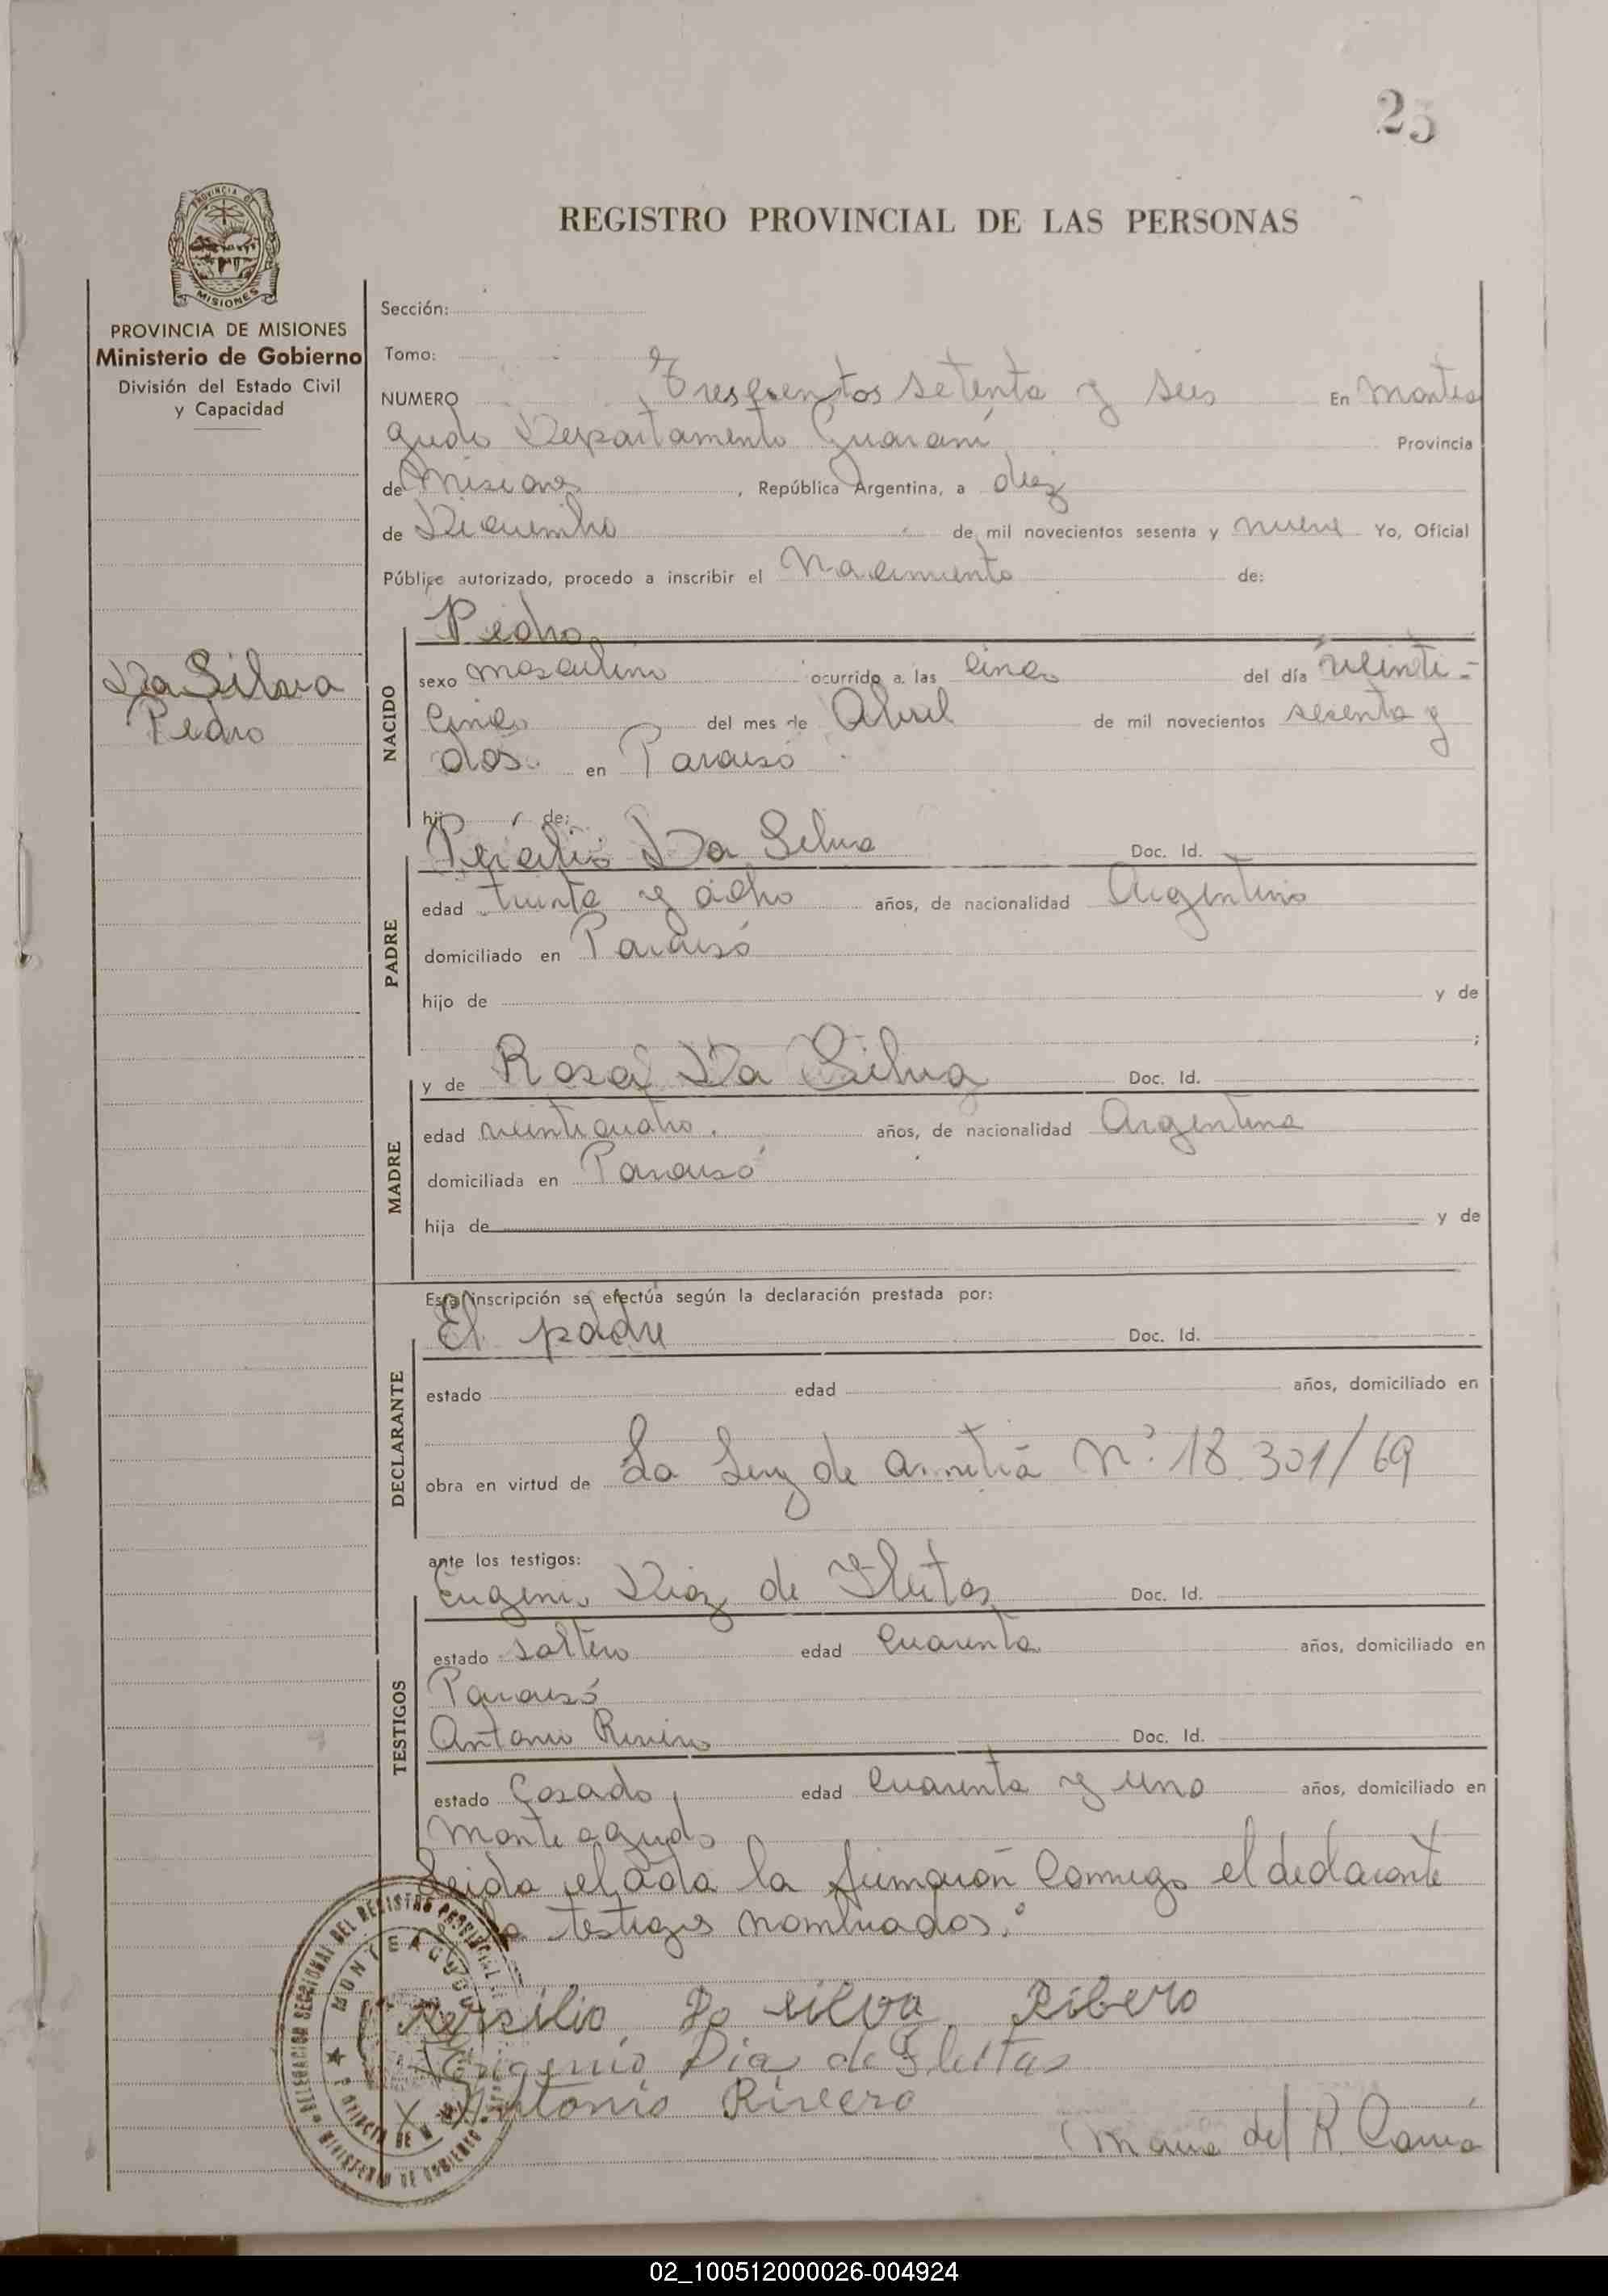 25
REGISTRO PROVINCIAL DE LAS PERSONAS
PROVINCIA DE MISIONES
Ministerio de Gobierno
División del Estado Civil
y Capacidad
Da Silva
Pedro
Sección:
Tomo:
NUMERO Trescientos setenta y seis En Montea
gudo Departamento Guaraní Provincia
de Misiones, República Argentina, a diez
de Diciembre de mil novecientos sesenta y nueve Yo, Oficial
Público autorizado, procedo a inscribir el Nacimiento de:
NACIDO
Pedro
sexo masculino ocurrido a las cinco del día veinti-
cinco del mes de Abril de mil novecientos sesenta y
dos. en Paraisó
hij de:
PADRE
Da Silva Doc. Id.
edad treinta y ocho años, de nacionalidad Argentino
domiciliado en Paraisó
hijo de y de
;
MADRE
y de Rosa Da Silva Doc. Id.
edad veinticuatro. años, de nacionalidad Argentina
domiciliada en Paraisó
hija de y de
Esta inscripción se efectúa según la declaración prestada por:
DECLARANTE
El padre Doc. Id.
estado edad años, domiciliado en
obra en virtud de La Ley de Nº. 18.301/69
ante los testigos:
TESTIGOS
Eugenio Diaz de Fleitas Doc. Id.
estado soltero edad cuarenta años, domiciliado en
Paraisó
Antonio Rivero Doc. Id.
estado Casado, edad cuarenta y uno años, domiciliado en
Monteagudo
Leida el acta la firmarón conmigo el declarante
testigos nombrados.
Persilio Da silva Ribero
Eugenio Dias de Fleitas
Antonio Rivero
Maria del R.
DELEGACION SECCIONAL DEL REGISTRO PROVINCIAL
MONTEAGUDO
MINISTERIO DE GOBIERNO
02_100512000026-004924